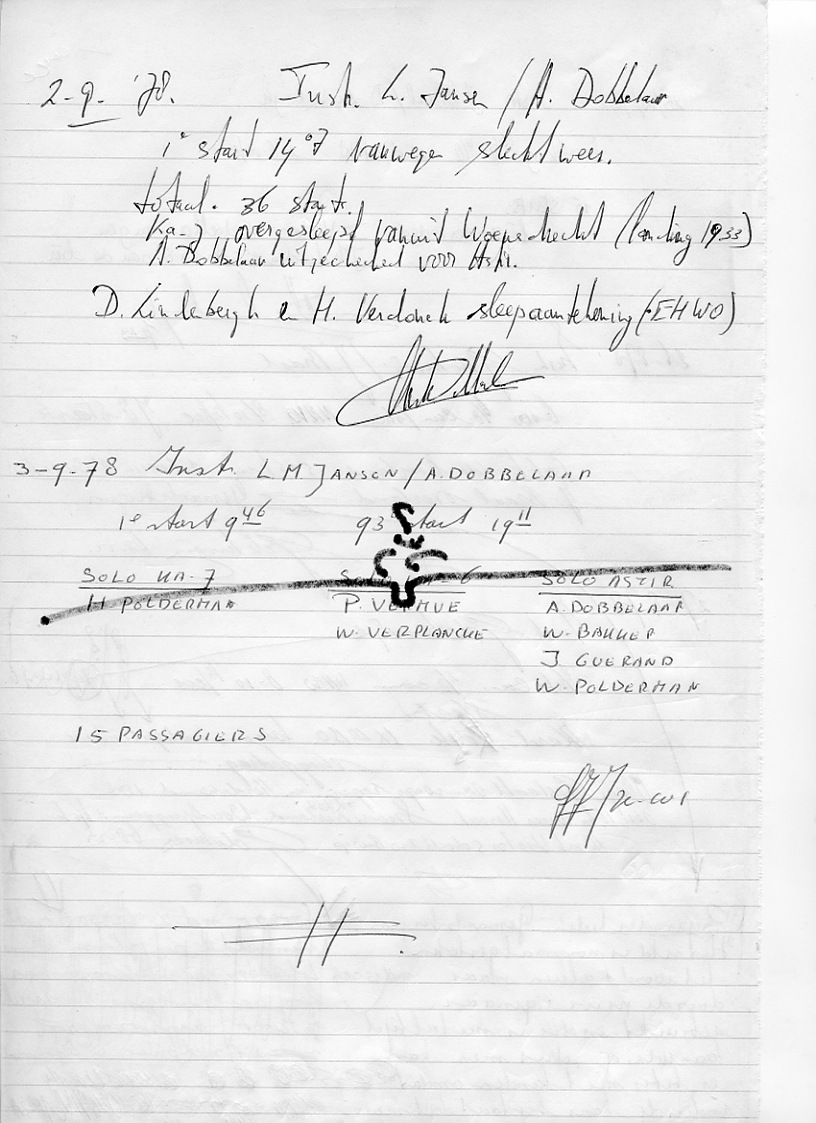 2-9-'78. Instr. L. Jansen / A. Dobbelaar
1e start 14 07 vanwege slecht weer.
totaal. 36 starts.
Ka-7 overgesleept vanuit Woensdrecht (landing 1933)
A. Dobbelaar uitgechecked voor Astir.
D. Lindenbergh en H. Verdonck sleepaantekening (EHWO)
3-9-78 Instr. L.M. JANSEN / A. DOBBELAAR
1e start 9 46 93e start 19 11
SOLO KA-7 6 SOLO ASTIR
H. POLDERMAN P. VERMUE A. DOBBELAAR
W. VERPLANCKE W. BAKKER
J. GUERAND
W. POLDERMAN
15 PASSAGIERS